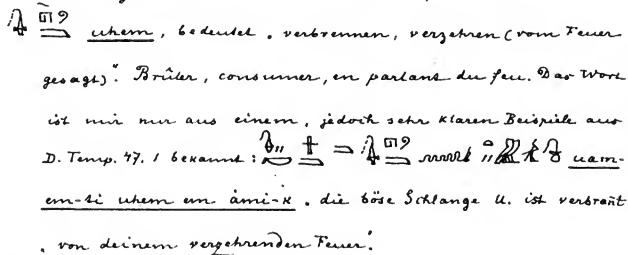 uhem, bedeutet „verbrennen, verzehren (vom Feuer
gesagt)“. Brûler, consumer, en parlant du feu. Das Wort
ist mir nur aus einem, jedoch sehr klaren Beispiele aus
D. Temp. 47. 1 bekannt: uam-
em-ti uhem em ȧmi-k „die böse Schlange U. ist verbrañt
„von deinem verzehrenden Feuer“.